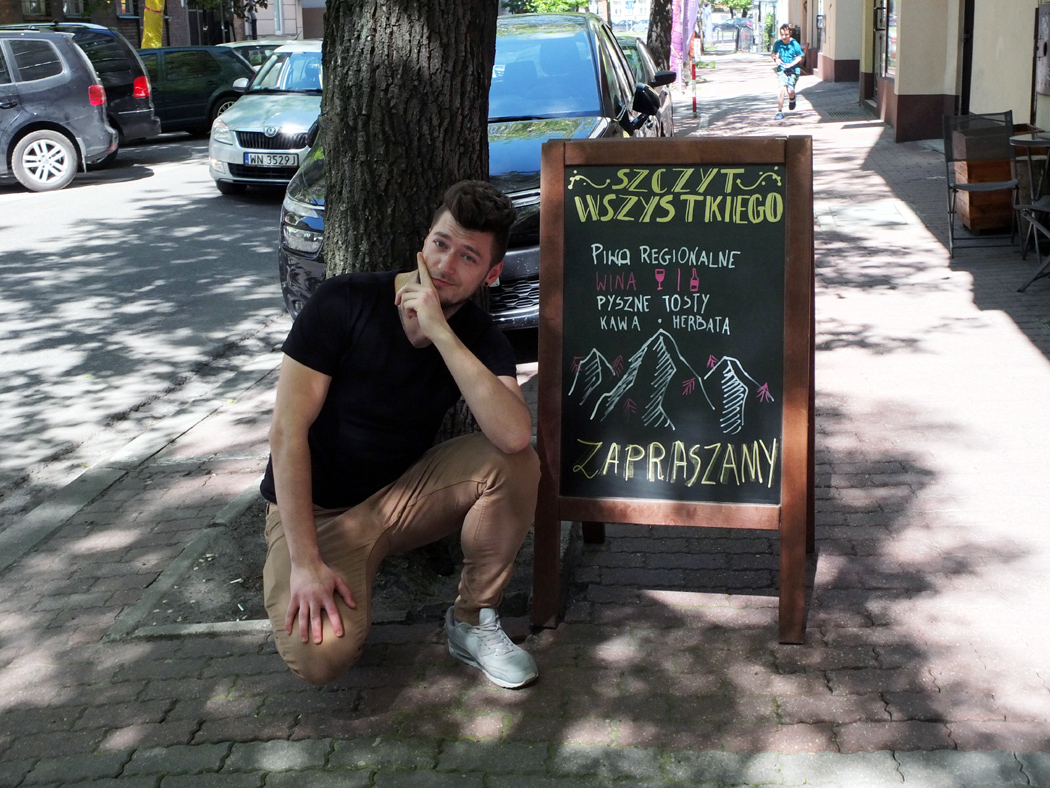 WN 3529J
SZCZYT
WSZYSTKIEGO
PIWA REGIONALNE
WINA
PYSZNE TOSTY
KAWA • HERBATA
ZAPRASZAMY